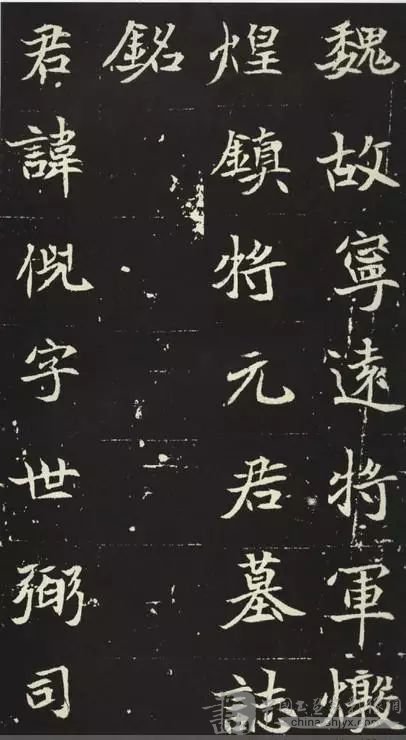 魏故寧遠將軍燉
煌鎮將元君墓誌
銘
君諱倪字世弼司
china-shjyx.com